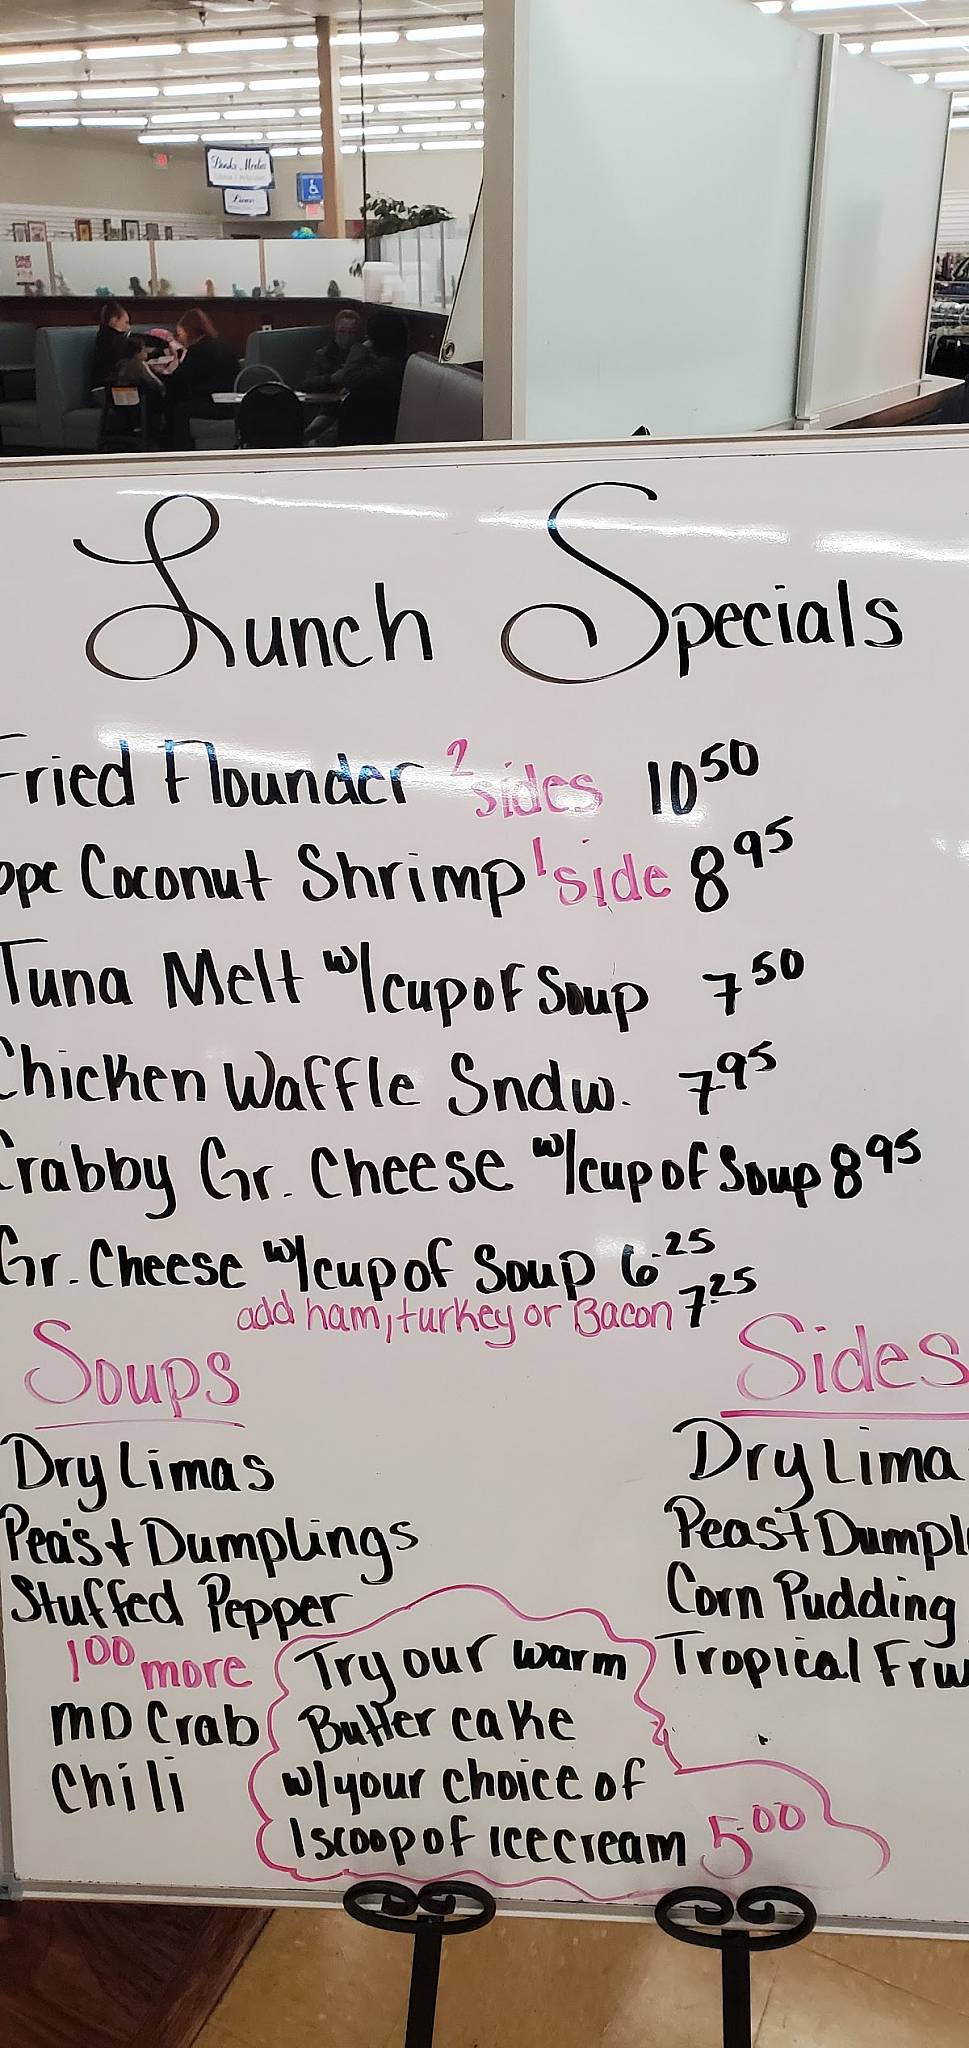 Books, Media
Linens
Lunch Specials
Fried Flounder 2 sides 10 50
pc Coconut Shrimp 1 side 8 95
Tuna Melt w/cup of Soup 7 50
Chicken Waffle Sndw. 7 95
Crabby Gr. Cheese w/cup of Soup 8 95
Gr. Cheese w/cup of Soup 6.25
add ham, turkey or Bacon 7.25
Soups
Dry Limas
Peas + Dumplings
Stuffed Pepper
1 00 more
MD Crab
Chili
Sides
Dry Lima
Peas + Dumpl
Corn Pudding
Tropical Fru
Try our warm
Butter cake
w/your choice of
1 scoop of ice cream 5.00